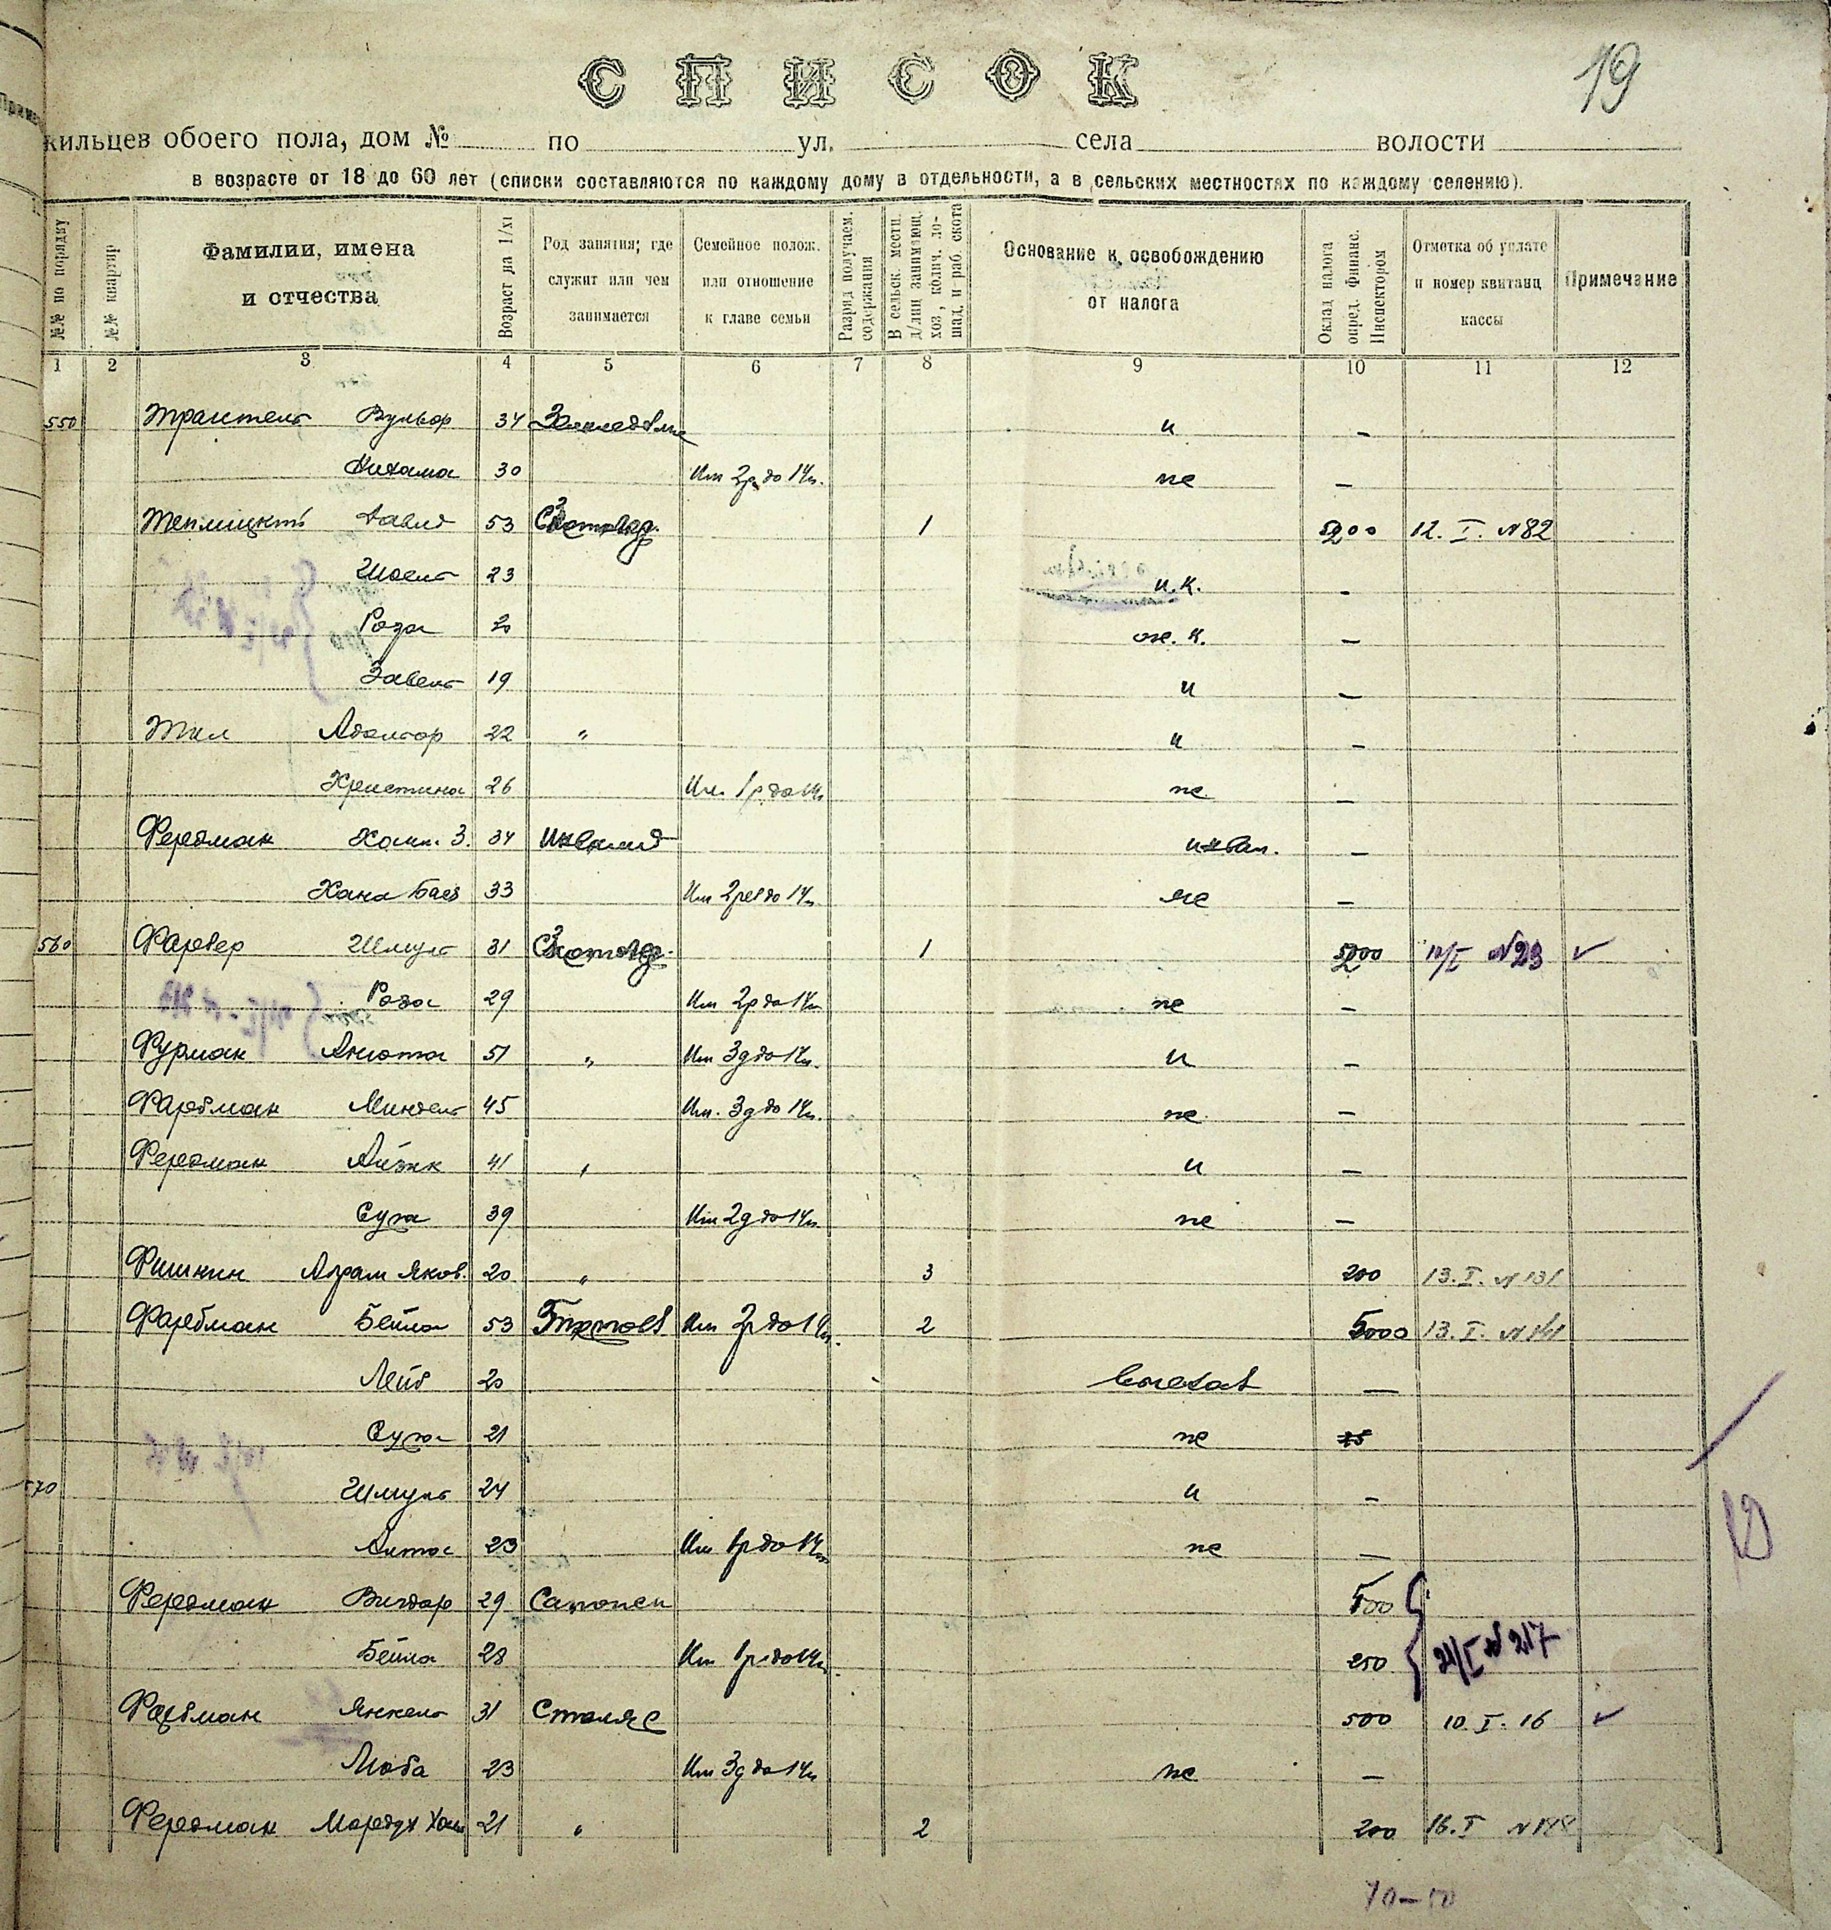 19
СПИСОК
жильцев обоего пола, дом № по ул. села волости
в возрасте от 18 до 60 лет (списки составляются по каждому дому в отдельности, а в сельских местностях по каждому селению).
№№ по порядку
№№ квартир
Фамилии, имена и отчества
Возраст на 1/XI
Род занятия; где служит или чем занимается
Семейное полож. или отношение к главе семьи
Разряд получаем. содержания
В сельск. местн. д/лиц занимающ. хоз., колич. лошад. и раб. скота
Основание к освобождению от налога
Оклад налога опред. Финанс. Инспектором
Отметка об уплате и номер квитанц кассы
Примечание
1 2 3 4 5 6 7 8 9 10 11 12
550 Вульф 34 и —
Нихама 30 Им 2р до 14л. не —
Теплицкий Давид 53 1 12. I. №82
Шоел 23 и.к. —
Роза 20 к. —
Завел 19 и —
Тил Адольф 22 " и —
Христина 26 Им. 1р до 14л не —
Фердман Хаим. З. 34 Инвалид инвал. —
Хана Бася 33 Им 2 реб до 14л не —
560 Фарбер Шмул 31 1 №23 ✓
Роза 29 Им 2р до 14л не —
Фурман Анюта 51 " Им 3д до 14л. и —
Фарбман Миндел 45 Им. 3д до 14л. не —
Фердман Айзик 41 " и —
Сура 39 Им 2д до 14л не —
Фишкин Абрам Яков. 20 " 3 200 13. I. №131
Фарбман Бейла 53 Торговля Им 2р до 14л. 2 5000 13. I.
Лейб 20 выехал —
Сура 21 не
570 Шмул 24 и —
23 Им 1р до 14л не —
Фердман Вигдор 29 Сапожн 500
Бейла 28 Им 1р до 14л. 250 24/I №217
Фарбман Янкель 31 Столяр 500 10. I. 16 ✓
Люба 23 Им 3д до 14л не —
Фердман Мордух Хаим 21 " 2 200 16. I